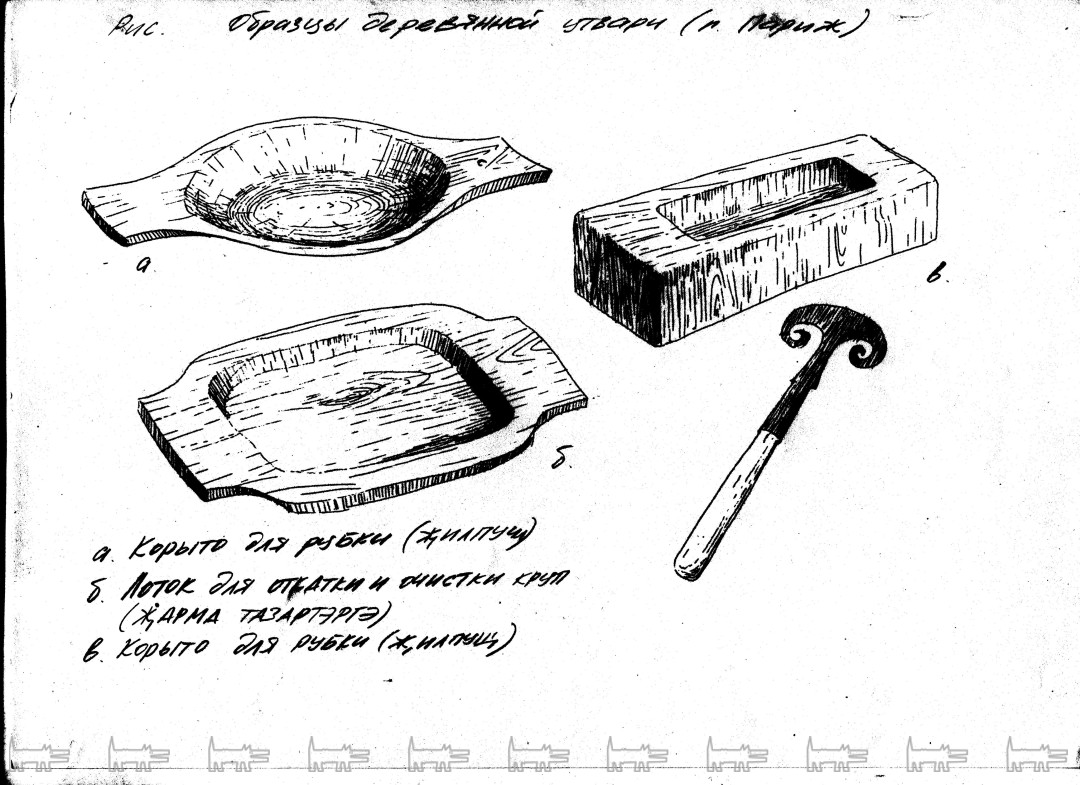 Рис. Образцы деревянной утвари (п. Париж)
а
в.
б.
а. Корыто для рубки (җилпуш)
б. Лоток для откатки и очистки круп
(җарма тазартэргэ)
в. Корыто для рубки (җилпуш)